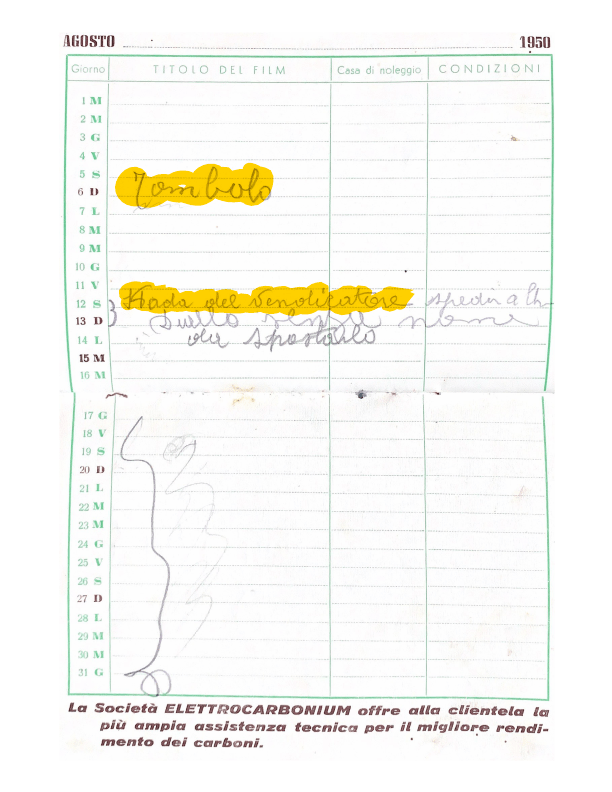 AGOSTO 1950
Giorno TITOLO DEL FILM Casa di noleggio CONDIZIONI
1 M
2 M
3 G
4 V
5 S
6 D Tombolo
7 L
8 M
9 M
10 G
11 V
12 S Strada del vendicatore
13 D Duello senza nome
14 L da spostarlo
15 M
16 M
17 G
18 V
19 S
20 D
21 L
22 M
23 M
24 G
25 V
26 S
27 D
28 L
29 M
30 M
31 G
La Società ELETTROCARBONIUM offre alla clientela la
più ampia assistenza tecnica per il migliore rendi-
mento dei carboni.